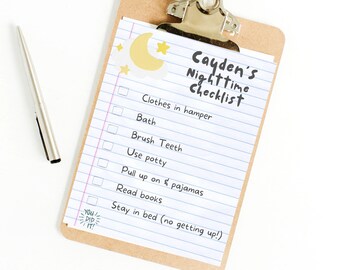 Cayden's
Nighttime
Checklist
Clothes in hamper
Bath
Brush Teeth
Use potty
Pull up on & pajamas
Read books
Stay in bed (no getting up!)
YOU
DID
IT!